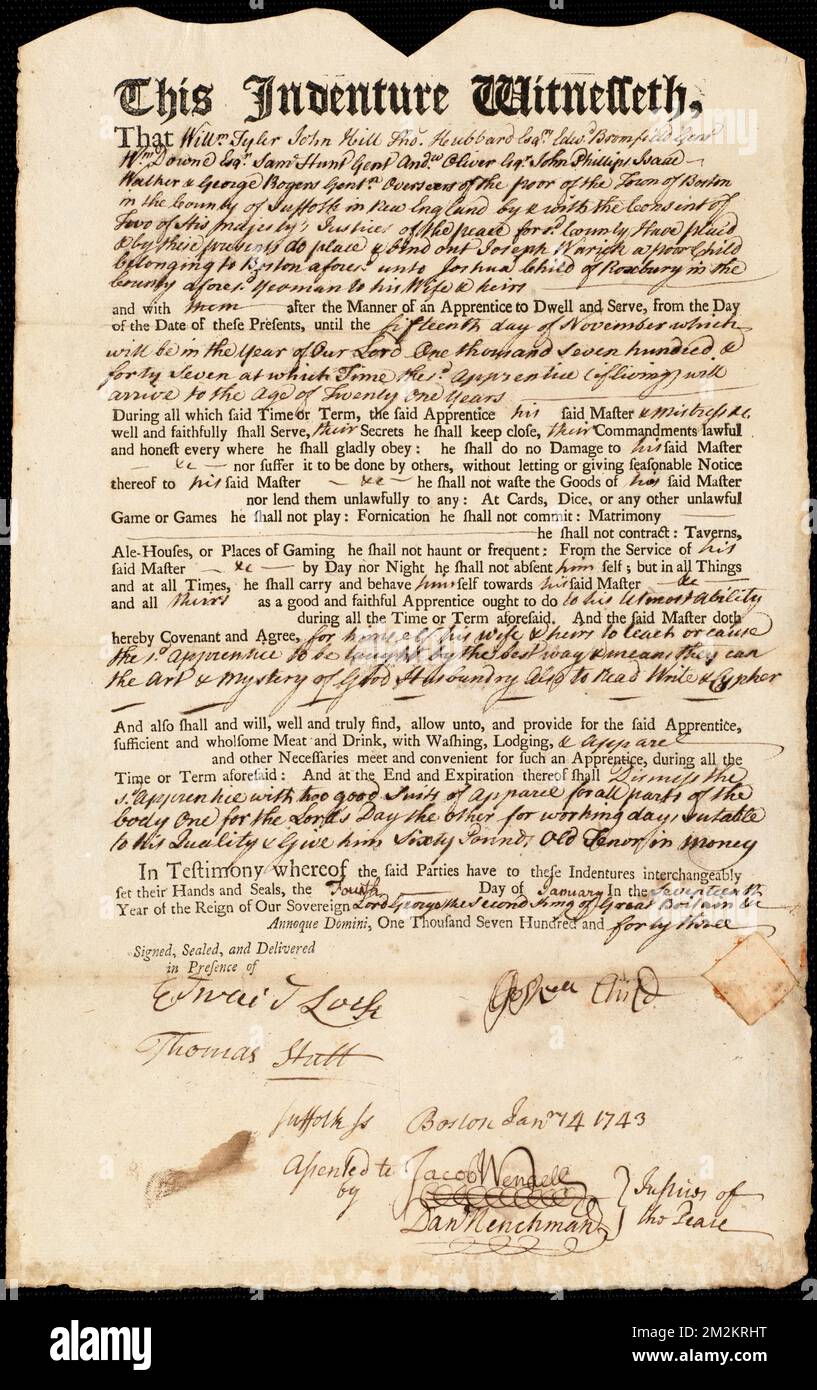 This Indenture Witnesseth,
That Willm Tyler John Hill Tho. Hubbard Esqrs Edwd Bromfield Gent
Wm Downe Esqr Saml Hunt Gent Andw Oliver Esqr John Phillips Isaac
Walker & George Rogers Gentn Overseers of the poor of the Town of Boston
in the County of Suffolk in New England by & with the Consent of
Two of His majesty's Justices of the peace for sd County Have plac'd
& by these presents do place & bind out Joseph Warick a poor Child
belonging to Boston aforesd unto Joshua Child of Roxbury in the
County aforesd Yeoman to his Wife & heirs
and with them after the Manner of an Apprentice to Dwell and Serve, from the Day
of the Date of these Presents, until the fifteenth day of November which
will be in the Year of Our Lord One thousand Seven hundred &
forty Seven at which Time the sd Apprentice (if living) will
arrive to the Age of Twenty One Years
During all which said Time or Term, the said Apprentice his said Master & Mistress &c.
well and faithfully shall Serve, their Secrets he shall keep close, their Commandments lawful
and honest every where he shall gladly obey: he shall do no Damage to his said Master
&c nor suffer it to be done by others, without letting or giving seasonable Notice
thereof to his said Master &c he shall not waste the Goods of his said Master
nor lend them unlawfully to any: At Cards, Dice, or any other unlawful
Game or Games he shall not play: Fornication he shall not commit: Matrimony
he shall not contract: Taverns,
Ale-Houses, or Places of Gaming he shall not haunt or frequent: From the Service of his
said Master &c by Day nor Night he shall not absent him self; but in all Things
and at all Times, he shall carry and behave himself towards his said Master &c
and all theirs as a good and faithful Apprentice ought to do to his Utmost Ability
during all the Time or Term aforesaid. And the said Master doth
hereby Covenant and Agree, for himself his wife & heirs to teach or cause
the sd Apprentice to be taught by the best way & means they can
the Art & Mystery of Good Husbundry Also to Read Write & Cypher
And also shall and will, well and truly find, allow unto, and provide for the said Apprentice,
sufficient and wholsome Meat and Drink, with Washing, Lodging, & apparel
and other Necessaries meet and convenient for such an Apprentice, during all the
Time or Term aforesaid: And at the End and Expiration thereof shall Dismiss the
sd Apprentice with two good Suits of Apparel for all parts of the
body One for the Lord's Day the other for working days, suitable
to his Quality & Give him Sixty Pounds Old Tenor in money
In Testimony whereof the said Parties have to these Indentures interchangeably
set their Hands and Seals, the Fourth Day of January In the Seventeenth
Year of the Reign of Our Sovereign Lord George the Second King of Great Britain &c
Annoque Domini, One Thousand Seven Hundred and forty three
Signed, Sealed, and Delivered
in Presence of
Joshua Child
Thomas
Suffolk ss Boston Janr 14 1743
Assented to by Jacob Wendell
Danl Henchman
Justices of the Peace
alamy
Image ID: 2M2KRHT
www.alamy.com